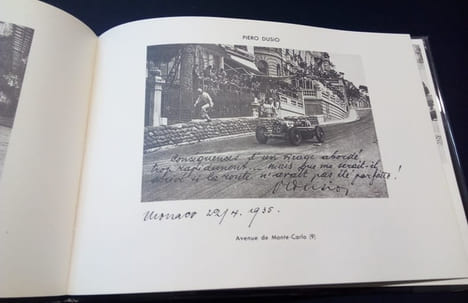 PIERO DUSIO
Conséquences d'un virage abordé
trop rapidement... mais que me serait-il
arrivé si la route n'avait pas été parfaite!
PDusio
Monaco 22/4. 1935.
Avenue de Monte-Carlo (9)